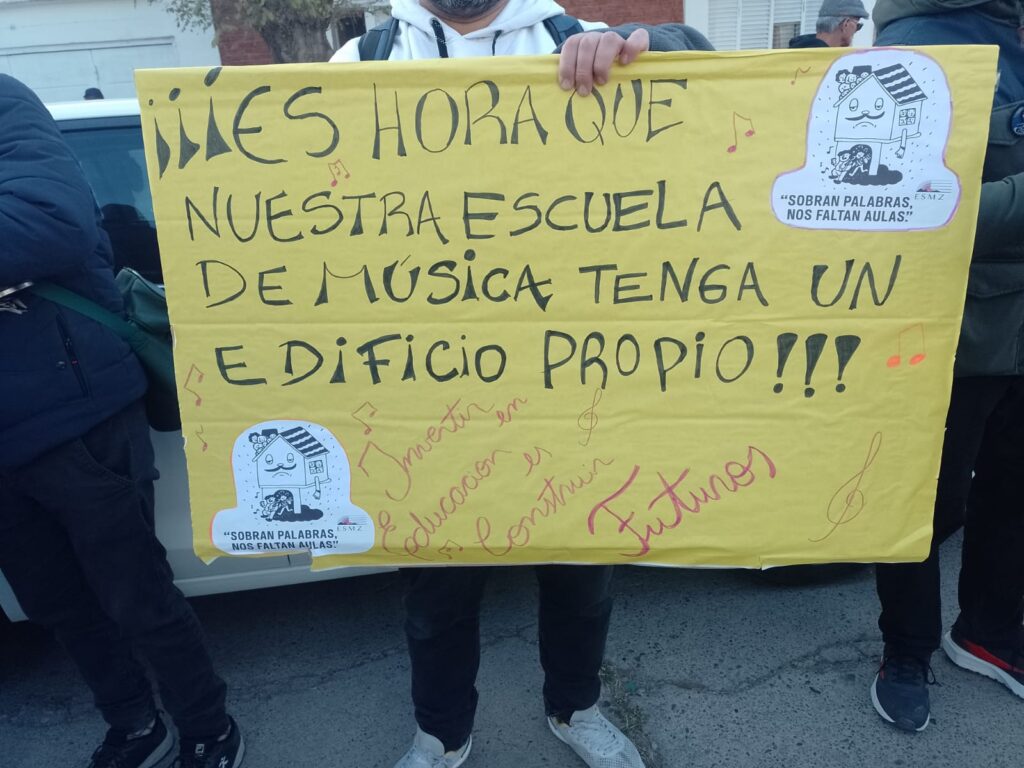 ¡¡¡ES HORA QUE
NUESTRA ESCUELA
DE MÚSICA TENGA UN
EDIFICIO PROPIO!!!
"SOBRAN PALABRAS,
NOS FALTAN AULAS."
ESMZ
Invertir en
Educación es
Construir
Futuros
"SOBRAN PALABRAS,
NOS FALTAN AULAS."
ESMZ